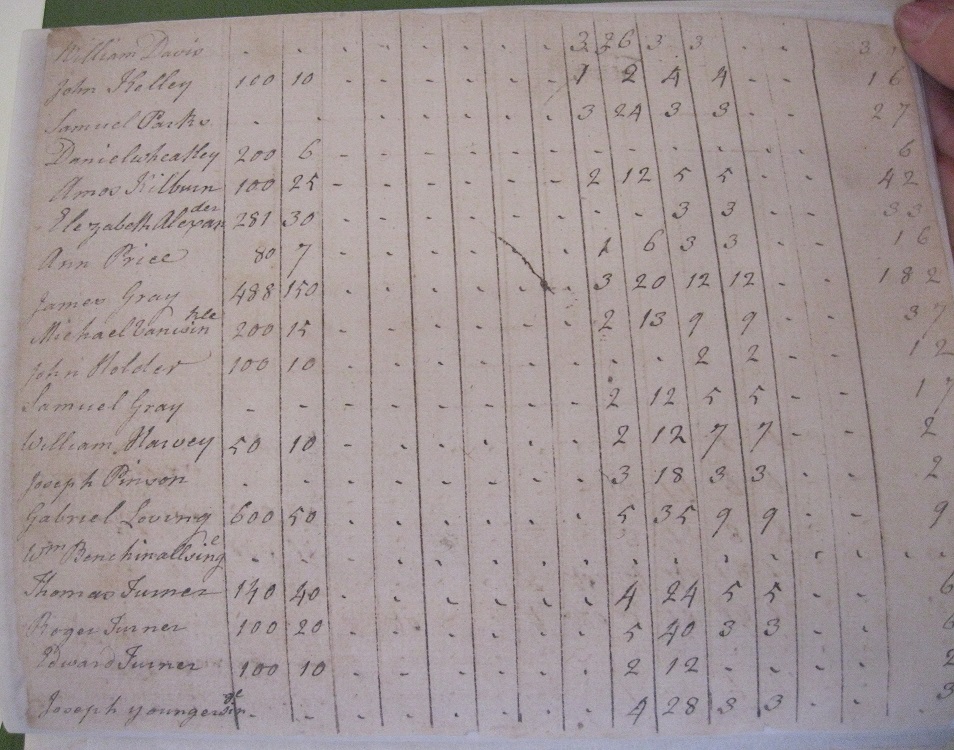 William Davis . . . . . . . . 3 26 3 3 . . 3
John Kelley 100 10 - - - - - - 1 2 4 4 - - 16
Samuel Parks . . . . . . . . 3 24 3 3 . . 27
Daniel wheatley 200 6 - - - - - - . . . . . . 6
Amos Kilburn 100 25 - - - - - - 2 12 5 5 . . 42
Elezabeth Alexander 281 30 . . . . . . . . 3 3 . . 33
Ann Price 80 7 - - - - - - 1 6 3 3 . . 16
James Gray 488 150 . . . . . . 3 20 12 12 . . 182
Michael 200 15 . . . . . . 2 13 9 9 . . 37
John Holder 100 10 . . . . . . . . 2 2 - - 12
Samuel Gray - - - - - - - - 2 12 5 5 - - 17
William Harvey 50 10 - - - - - - 2 12 7 7 - - 2
Joseph Pinson . . . . . . . . 3 18 3 3 . . 2
Gabriel Loving 600 50 . . . . . . 5 35 9 9 . . 9
Wm . . . . . . . . . . . . . .
Thomas Turner 140 40 . . . . . . 4 24 5 5 . . 6
Roger Turner 100 20 . . . . . . 5 40 3 3 . . 6
Edward Turner 100 10 . . . . . . 2 12 . . . . 2
Joseph . . . . . . . . 4 28 3 3 . . 3